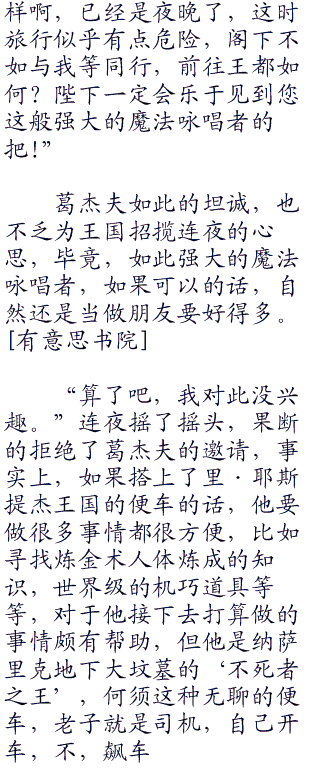 样啊，已经是夜晚了，这时
旅行似乎有点危险，阁下不
如与我等同行，前往王都如
何？陛下一定会乐于见到您
这般强大的魔法咏唱者的
把!”
葛杰夫如此的坦诚，也
不乏为王国招揽连夜的心
思，毕竟，如此强大的魔法
咏唱者，如果可以的话，自
然还是当做朋友要好得多。
[有意思书院]
“算了吧，我对此没兴
趣。”连夜摇了摇头，果断
的拒绝了葛杰夫的邀请，事
实上，如果搭上了里·耶斯
提杰王国的便车的话，他要
做很多事情都很方便，比如
寻找炼金术人体炼成的知
识，世界级的机巧道具等
等，对于他接下去打算做的
事情颇有帮助，但他是纳萨
里克地下大坟墓的‘不死者
之王’，何须这种无聊的便
车，老子就是司机，自己开
车，不，飙车